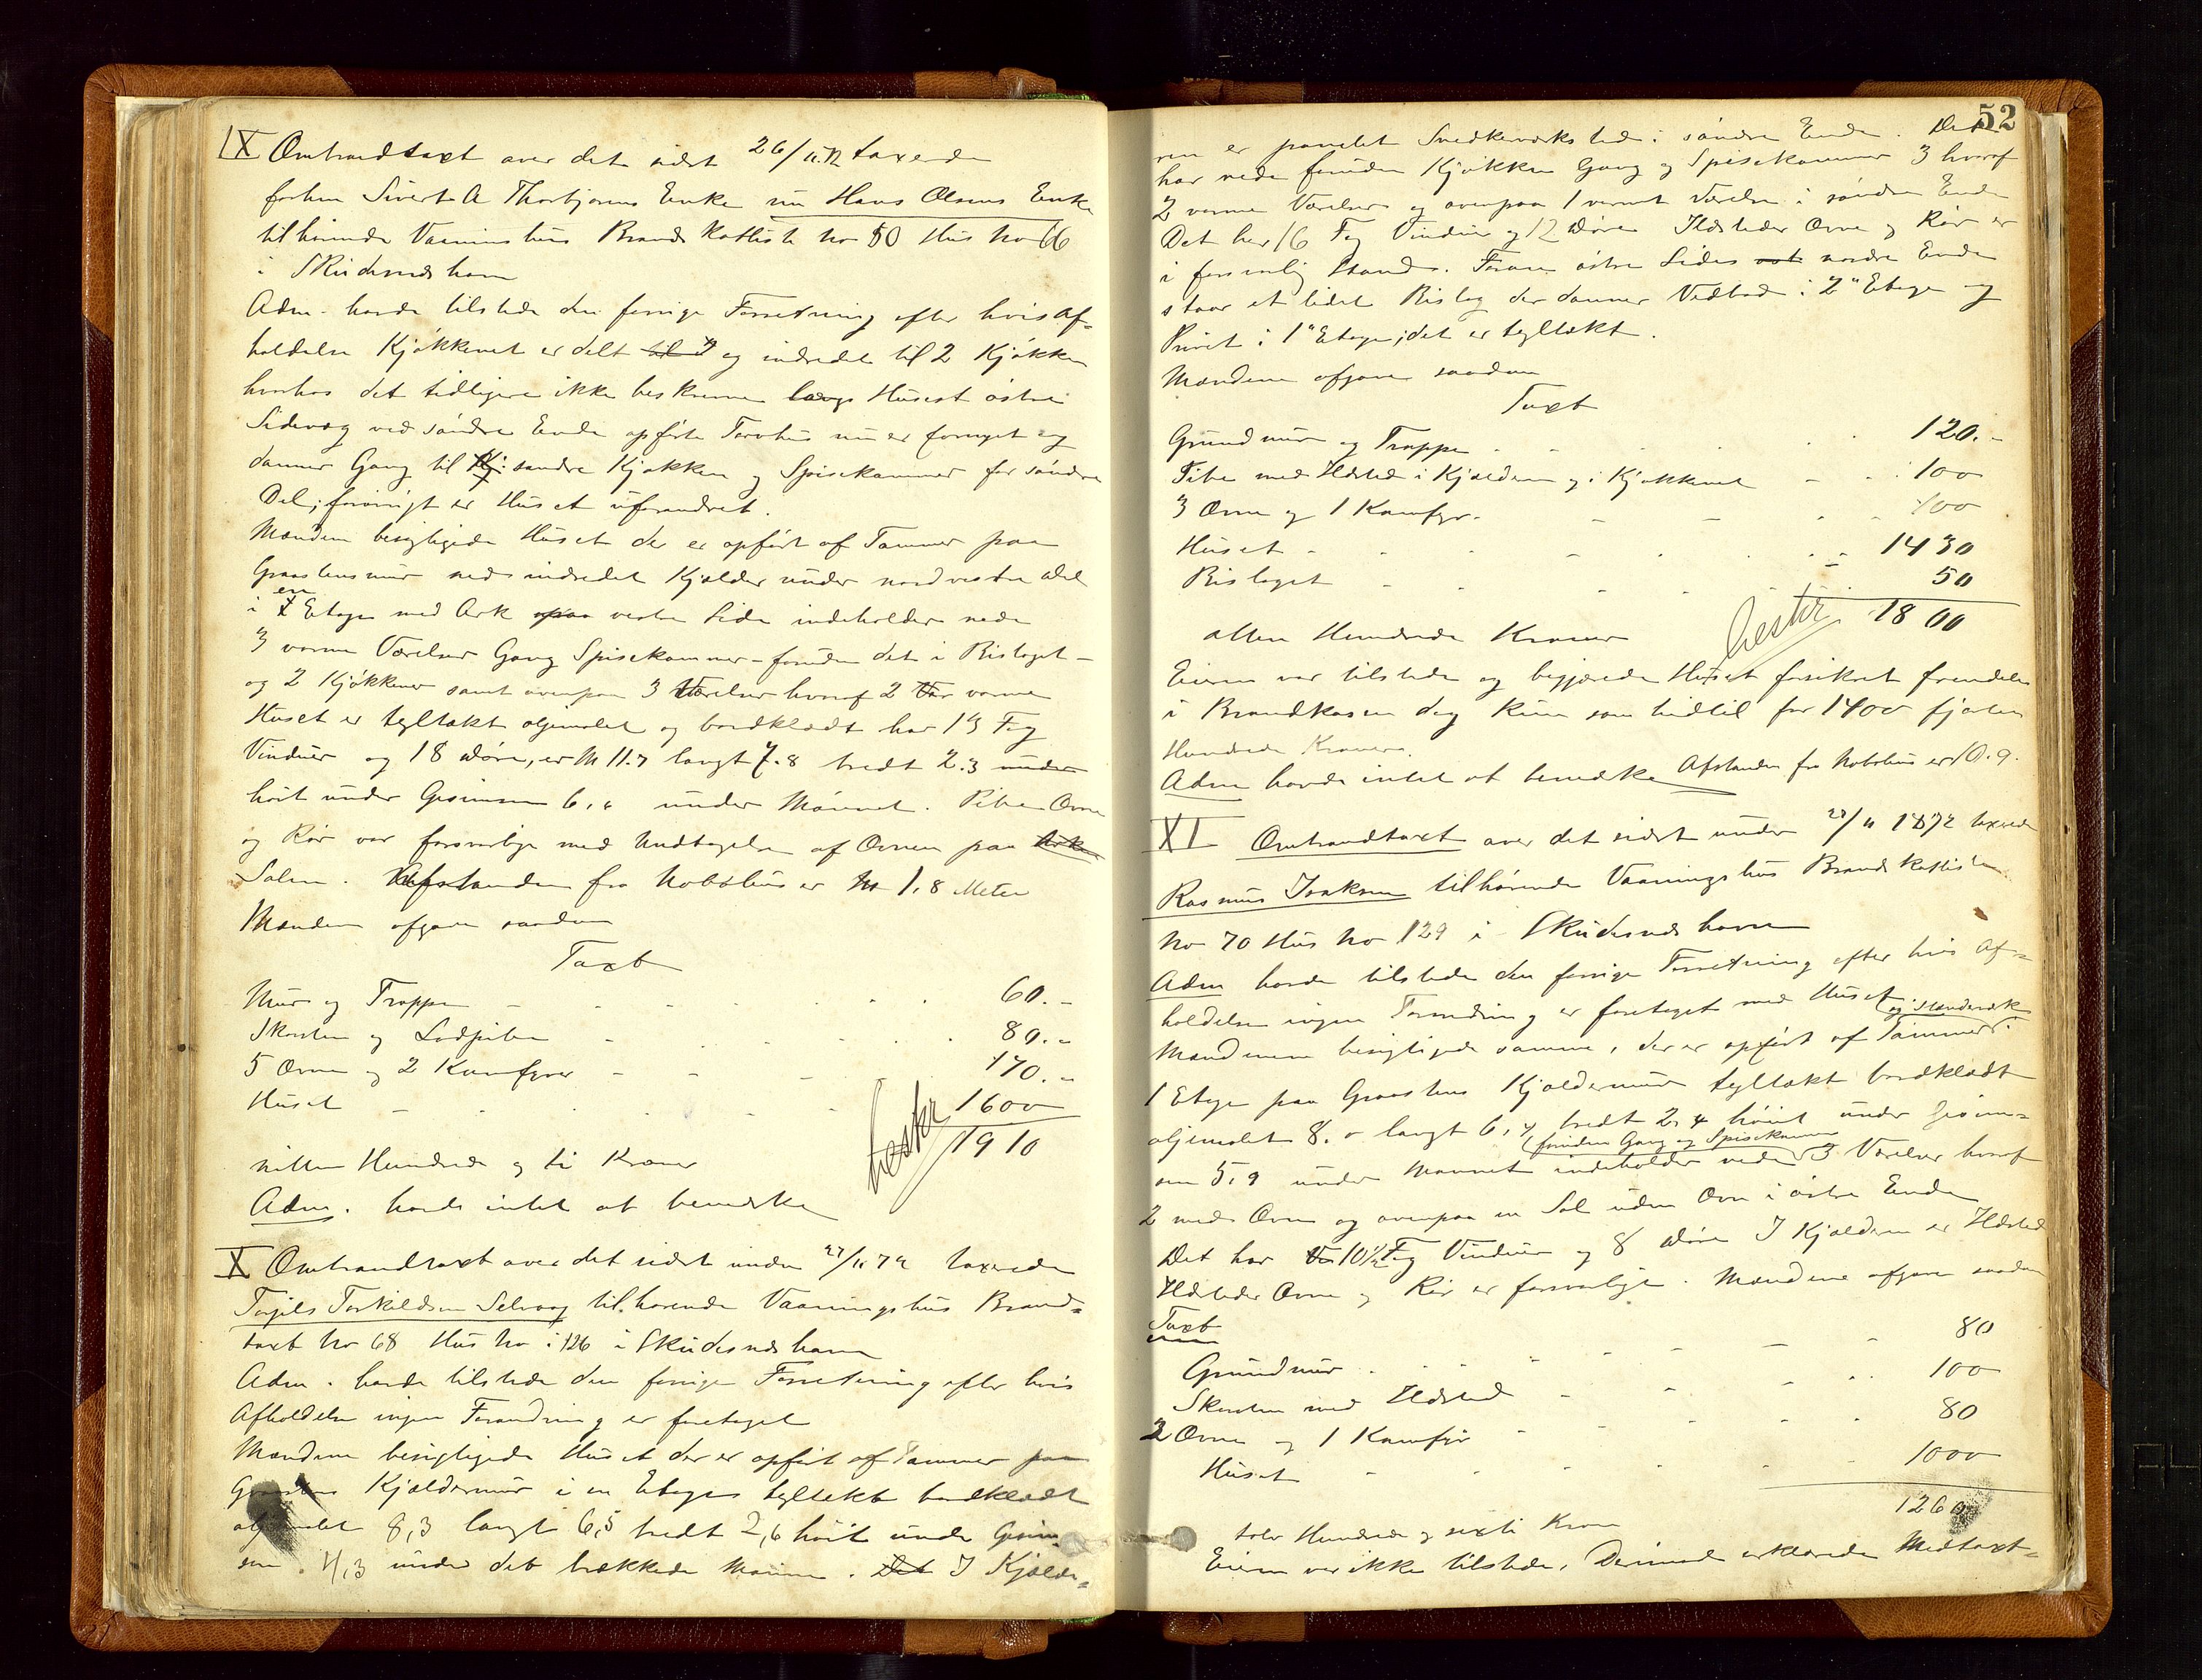 IX Ombrandtaxt over det sidst 26/11.72 taxerede
forhen Sivert A Thorbjørns Enke nu Hans Olsens Enke
tilhørende Vaaningshus Brandskatliste No 50 Hus No 66
i Skudesneshavn
Adm. havde tilstede den forrige Forretning efter hvis Af-
holdelse Kjøkkenet er delt til 2 og indredet til 2 Kjøkken
hvorhos det tidligere ikke beskrevne langs Huset østre
Sidevæg ved søndre Ende opførte Torvhus nu er fornyet og
danner Gang til Kj: søndre Kjøkken og Spisekammer for søndre
Del; forøvrigt er Huset uforandret.
Mændene besigtigede Huset der er opført af Tømmer paa
Graastensmur med indredet Kjælder under nordvestre Del
i en Etage med Ark paa vestre Side indeholder nede
3 varme Værelser Gang Spisekammer - foruden det i Bislaget -
og 2 Kjøkkener samt ovenpaa 3 Værelser hvoraf 2 Vær varme
Huset er tegltækt oljemalet og bordklædt har 19 Fag
Vinduer og 18 Døre, er M 11.7 langt 7.8 bredt 2.3 under
høit under Gesimsen 6.4 under Mønnet. Piber Ovne
og Rør var forsvarlige med Undtagelse af Ovnen paa Arke
Salen. Afstanden fra Nabohus er M 1,8 Meter
Mændene afgave saadan
Taxt
Mur og Trappe - 60.-
Skorsten og Lodpibe - 80.-
5 Ovne og 2 Kumfyrer - 170.-
Huset - 1600
heskr 1910
nitten Hundrede og ti Kroner
Adm. havde intet at bemerke
X Ombrandtaxt over det sidst under 27/11 72 taxerede
Torjils Torkildsen Selvaag tilhørende Vaaningshus Brand-
taxt No 68 Hus No 126 i Skudesneshavn
Adm. havde tilstede den forrige Forretning efter hvis
Afholdelse ingen Forandring er foretaget
Mændene besigtigede Huset der er opført af Tømmer paa
Graastens Kjældermur i en Etage tegltækt bordklædt
oljemalet 8,3 langt 6,5 bredt 2,6 høit under Gesim-
sen 4,3 under det brækkede Mønne. Det I Kjælde-
52
ren er panelet Snedkerværksted i søndre Ende. Det
har nede foruden Kjøkken Gang og Spisekammer 3 hvoraf
2 varme Værelser og ovenpaa 1 varmt Værelse i søndre Ende
Det har 16 Fag Vinduer og 12 Døre Ildsteder Ovne og Rør er
i forsvarlig Stand. Foran østre Sides nordre Ende
staar et lidet Bislag der danner Vedbod i 2" Etage og
Privet i 1" Etage; det er tegltækt.
Mændene afgave saadan
Taxt
Grundmur og Trappe - 120.-
Pibe med Ildsted i Kjælderen og i Kjøkkenet - 100
3 Ovne og 1 Kumfyr. - 100
Huset - 1430
Bislaget - 50
heskr. 1800
atten Hundrede Kroner
Eieren var tilstede og begjærede Huset forsikret fremdeles
i Brandkassen dog kun som hidtil for 1400 fjorten
Hundrede Kroner.
Adm havde intet at bemerke Afstanden fra Nabohus er 10.9.
XI Ombrandtaxt over det sidst under 27/11 1872 taxerede
Rasmus Isaksen tilhørende Vaaningshus Brandskatliste
No 70 Hus No 129 i Skudesneshavn
Adm havde tilstede den forrige Forretning efter hvis Af-
holdelse ingen Forandring er foretaget med Huset
Mændene besigtigede samme, der er opført af Tømmer og Stænderværk i
1 Etage paa Graastens Kjældermur tegltækt bordklædt
oljemalet 8.0 langt 6,4 bredt 2,4 høit under Gesim-
sen 5,9 under Mønnet indeholder nede foruden Gang og Spisekammer 3 Værelser hvoraf
2 med Ovne og ovenpaa en Sal uden Ovn i østre Ende
Det har 10½ Fag Vinduer og 8 Døre I Kjælderen er Ildsted
Ildsteder Ovne og Rør er forsvarlige. Mændene afgave saadan
Taxt
Grundmur - 80
Skorsten med Ildsted - 100
2 Ovne og 1 Kumfyr - 80
Huset - 1000
1260
tolv Hundrede og sexti Kroner
Eieren var ikke tilstede. Derimod erklærede Medtaxt-